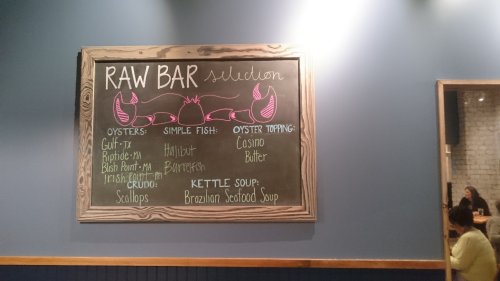 RAW BAR selection
OYSTERS: SIMPLE FISH: OYSTER TOPPING:
Gulf - TX Halibut Casino
Riptide - MA Barrelfish Butter
Blish Point - MA
Irish Point -
CRUDO: KETTLE SOUP:
Scallops Brazilian Seafood Soup